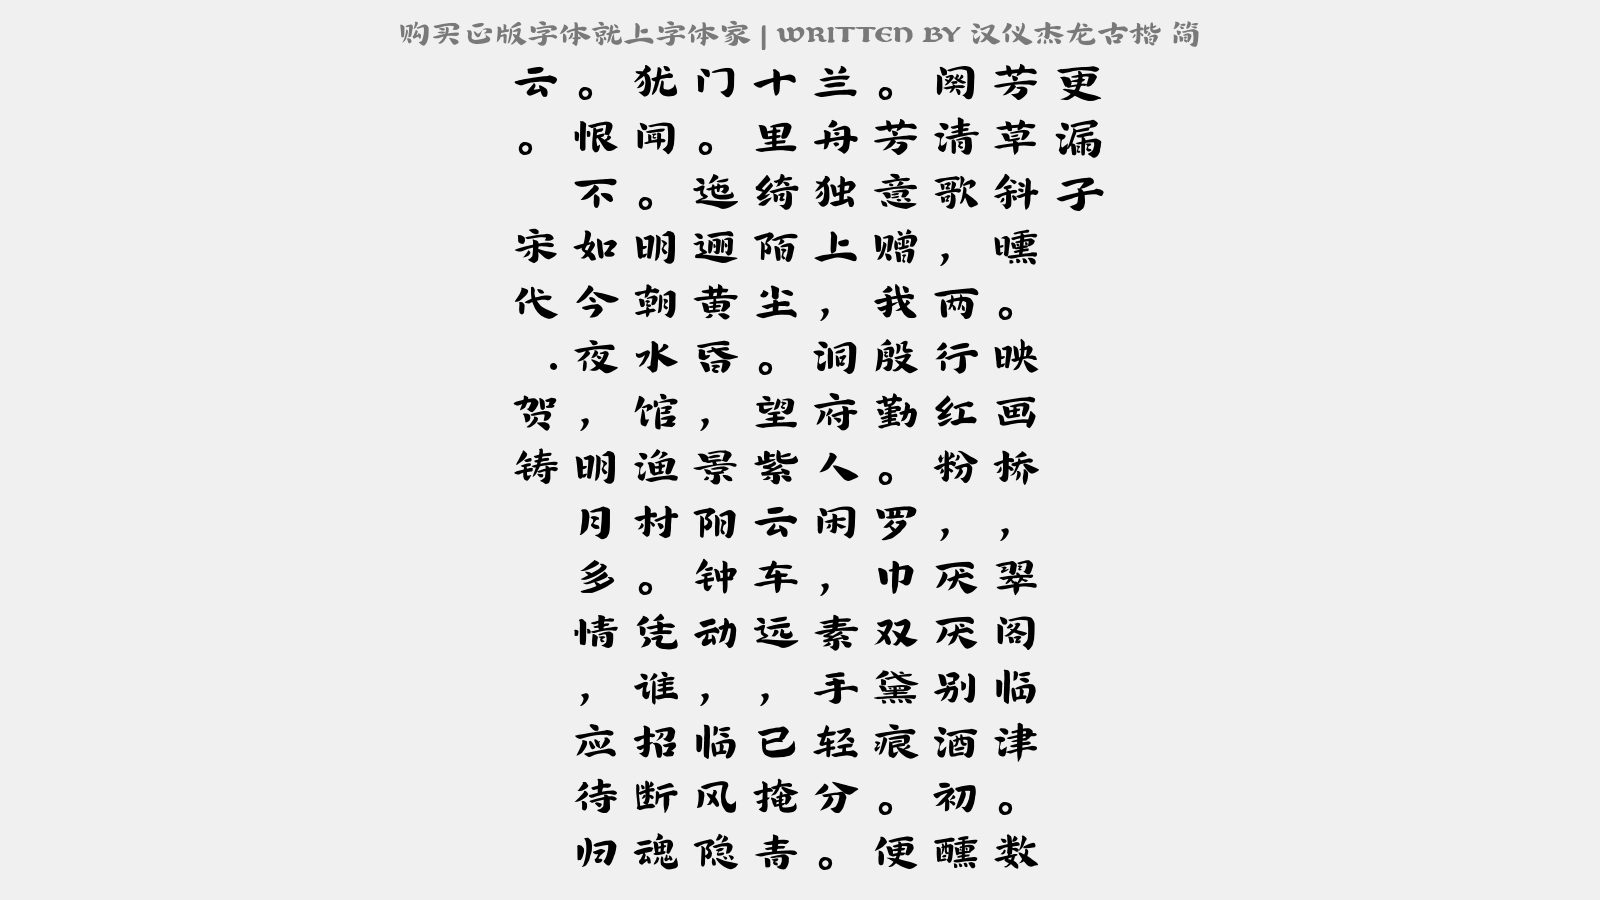 购买正版字体就上字体家 | WRITTEN BY 汉仪杰龙古楷 简
更漏子
芳草斜曛。映画桥，翠阁临津。数
阕清歌，两行红粉，厌厌别酒初醺
。芳意赠我殷勤。罗巾双黛痕。便
兰舟独上，洞府人闲，素手轻分。
十里绮陌尘。望紫云车远，已掩青
门。迤逦黄昏，景阳钟动，临风隐
犹闻。明朝水馆渔村。凭谁招断魂
。恨不如今夜，明月多情，应待归
云。 宋代.贺铸